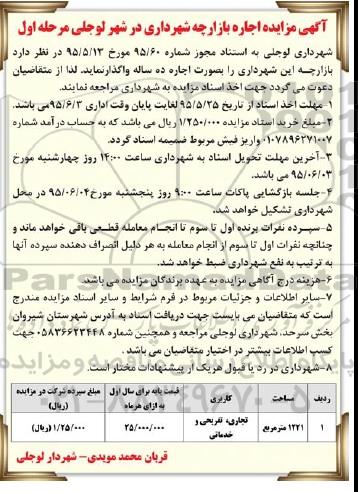 آگهی مزایده اجاره بازارچه شهرداری در شهر لوجلی مرحله اول
شهرداری لوجلی به استناد مجوز شماره ۹۵/۶۰ مورخ ۹۵/۵/۱۳ در نظر دارد
بازارچه این شهرداری را بصورت اجاره ده ساله واگذارنماید. لذا از متقاضیان
دعوت می گردد جهت اخذ اسناد مزایده به شهرداری مراجعه نمایند.
۱-مهلت اخذ اسناد از تاریخ ۹۵/۵/۲۵ لغایت پایان وقت اداری ۹۵/۶/۳می باشد.
۲-مبلغ خرید اسناد مزایده ۱/۲۵۰/۰۰۰ ریال می باشد که به حساب درآمد شماره
۰۱۰۷۸۹۶۲۷۱۰۰۷ واریز فیش مربوط ضمیمه اسناد گردد.
۳-آخرین مهلت تحویل اسناد به شهرداری ساعت ۱۴:۰۰ روز چهارشنبه مورخ
۹۵/۰۶/۰۳ می باشد.
۴-جلسه بازگشایی پاکات ساعت ۹:۰۰ روز پنجشنبه مورخ۹۵/۰۶/۰۴ در محل
شهرداری تشکیل خواهد شد.
۵-سپرده نفرات برنده اول تا سوم تا انجام معامله قطعی باقی خواهد ماند و
چنانچه نفرات اول تا سوم از انجام معامله به هر دلیل انصراف دهنده سپرده آنها
به ترتیب به نفع شهرداری ضبط خواهد شد.
۶-هزینه درج آگاهی مزایده به عهده برندگان مزایده می باشد.
۷-سایر اطلاعات و جزئیات مربوط در فرم شرایط و سایر اسناد مزایده مندرج
است که متقاضیان می بایست جهت دریافت اسناد به آدرس شهرستان شیروان
بخش سرحد، شهرداری لوجلی مراجعه و همچنین شماره ۰۵۸۳۶۶۲۳۴۴۸ جهت
کسب اطلاعات بیشتر در اختیار متقاضیان می باشد.
۸-شهرداری در رد یا قبول هریک از پیشنهادات مختار است.
ردیف مساحت کاربری قیمت پایه برای سال اول به ازای هرماه مبلغ سپرده شرکت در مزایده (ریال)
۱ ۱۲۲۱ مترمربع تجاری، تفریحی و خدماتی ۲۵/۰۰۰/۰۰۰ ۱/۲۵/۰۰۰ (ریال)
قربان محمد مویدی- شهردار لوجلی